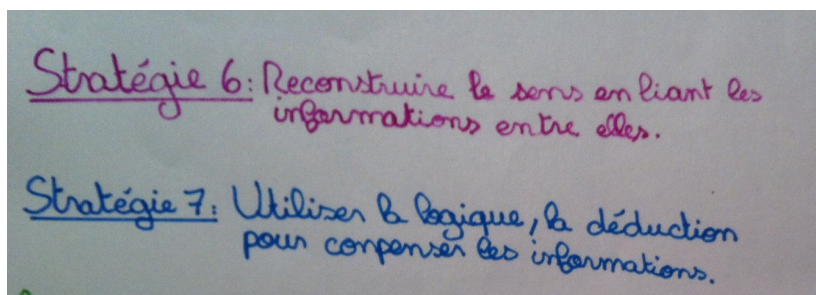 Stratégie 6: Reconstruire le sens en liant les
informations entre elles.
Stratégie 7: Utiliser la logique, la déduction
pour conpenser les informations.